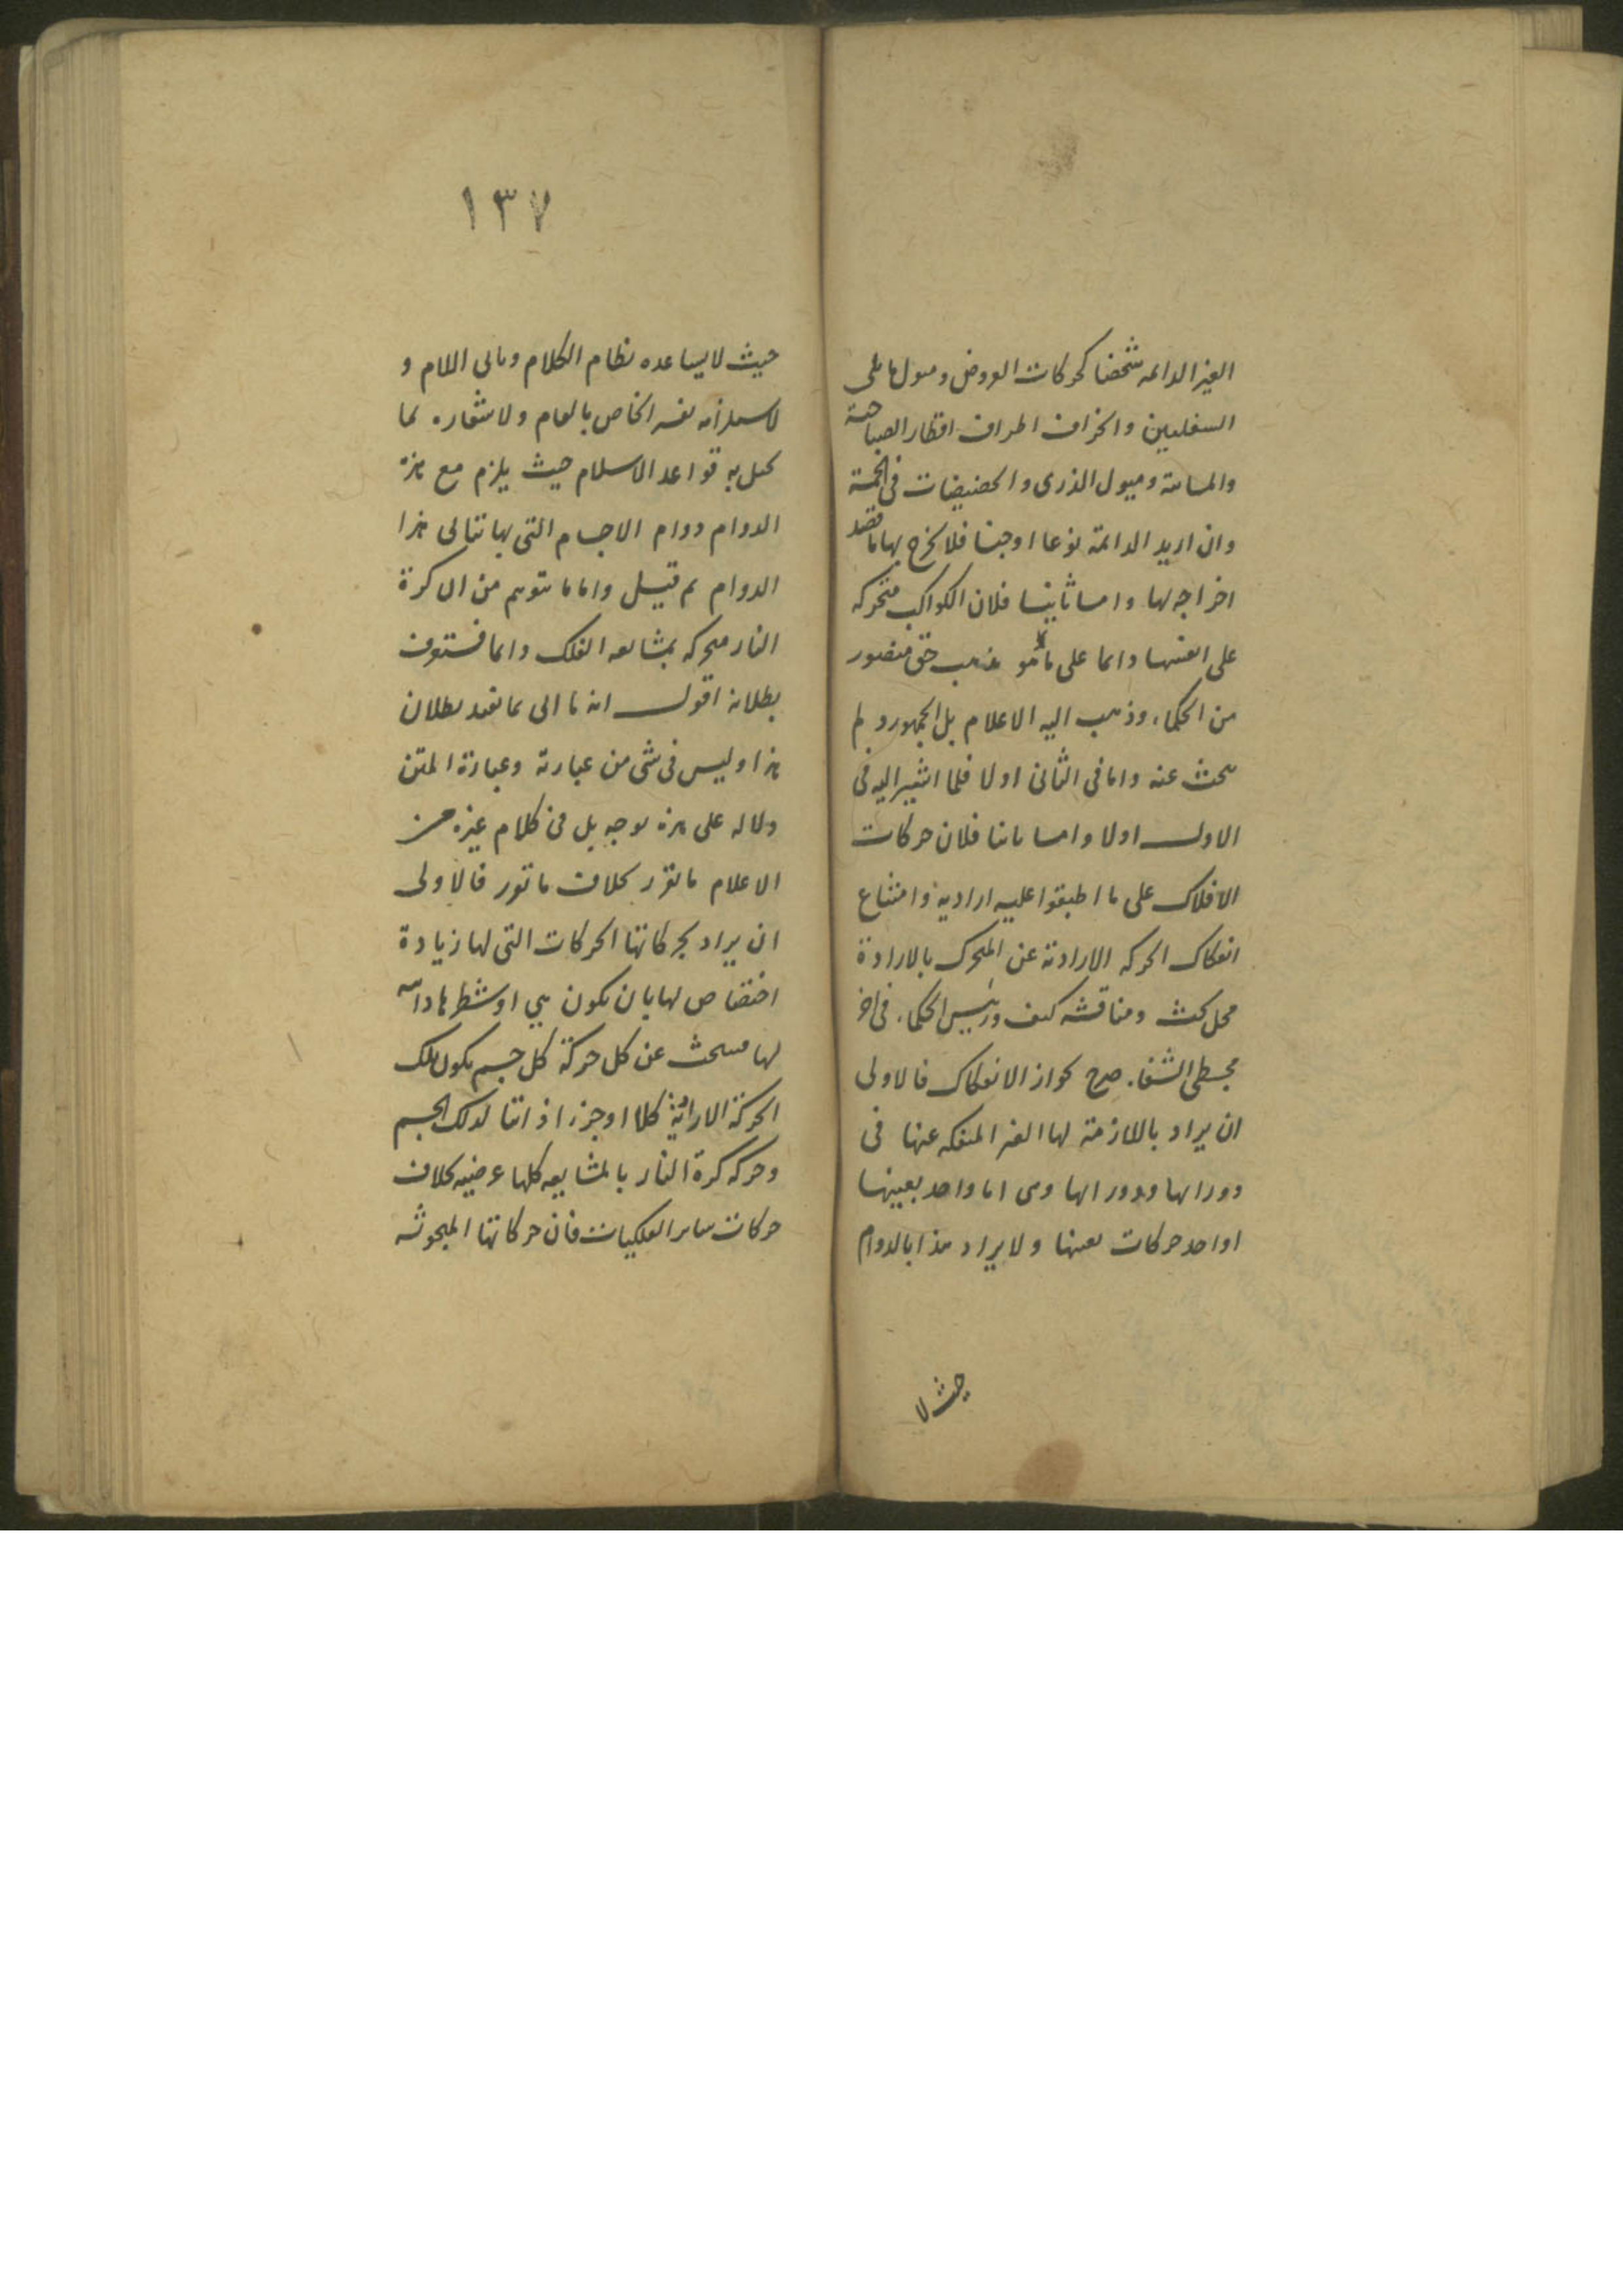 الغير الدائمه شخصا كحركات العروض وميول مايلى
السفليين وانحراف اطراف اقطار الصباحية
والمسائية وميول الذرى والحضيضات فى الخمسة
وان اريد الدائمة نوعا او جنسا فلا يخرج بها ما قصد
اخراجه لها واما ثانيا فلان الكواكب متحركه
على انفسها دائما على ما هو مذهب حق منصور
من الحكماء وذهب اليه الاعلام بل الجمهور ولم
يبحث عنه واما فى الثانى اولا فلما اشير اليه فى
الاول اولا واما ثانيا فلان حركات
الافلاك على ما اطبقوا عليه ارادية وامتناع
انفكاك الحركه الارادية عن المتحرك بالارادة
محل بحث ومناقشه كيف ورئيس الحكماء فى اخر
مجسطى الشفاء صرح بجواز الانفكاك فالاولى
ان يراد باللازمة لها الغير المنفكه عنها فى
دورانها ودورانها وهى اما واحد بعينها
او احد حركات بعينها ولا يراد هذا بالدوام
حيث لا
١٣٧
حيث لا يساعده نظام الكلام ويابى اللام و
لاستلزامه تفسير الخاص بالعام ولاشعاره بما
يخل به قواعد الاسلام حيث يلزم مع هذه
الدوام دوام الاجسام التى بها تتالى هذا
الدوام لم قيل واما ما يتوهم من ان كرة
النار متحركه بمشايعه الفلك دائما فستعرف
بطلانه اقول انه ما اتى بما يفيد بطلان
هذا وليس فى شى من عبارته وعبارة المتن
دلاله على هذه بوجه بل فى كلام غيره من
الاعلام ما تقرر بخلاف ما تور فالاولى
ان يراد بحركاتها الحركات التى لها زيادة
اختصاص لها بان يكون هى او شطرها ذاتيه
لها فيبحث عن كل حركة كل جسم يكون تلك
الحركة الارادية كلا او جزءا ذاتيا لذلك الجسم
وحركه كرة النار بالمشايعه كلها عرضيه بخلاف
حركات ساير الفلكيات فان حركاتها المبحوثه